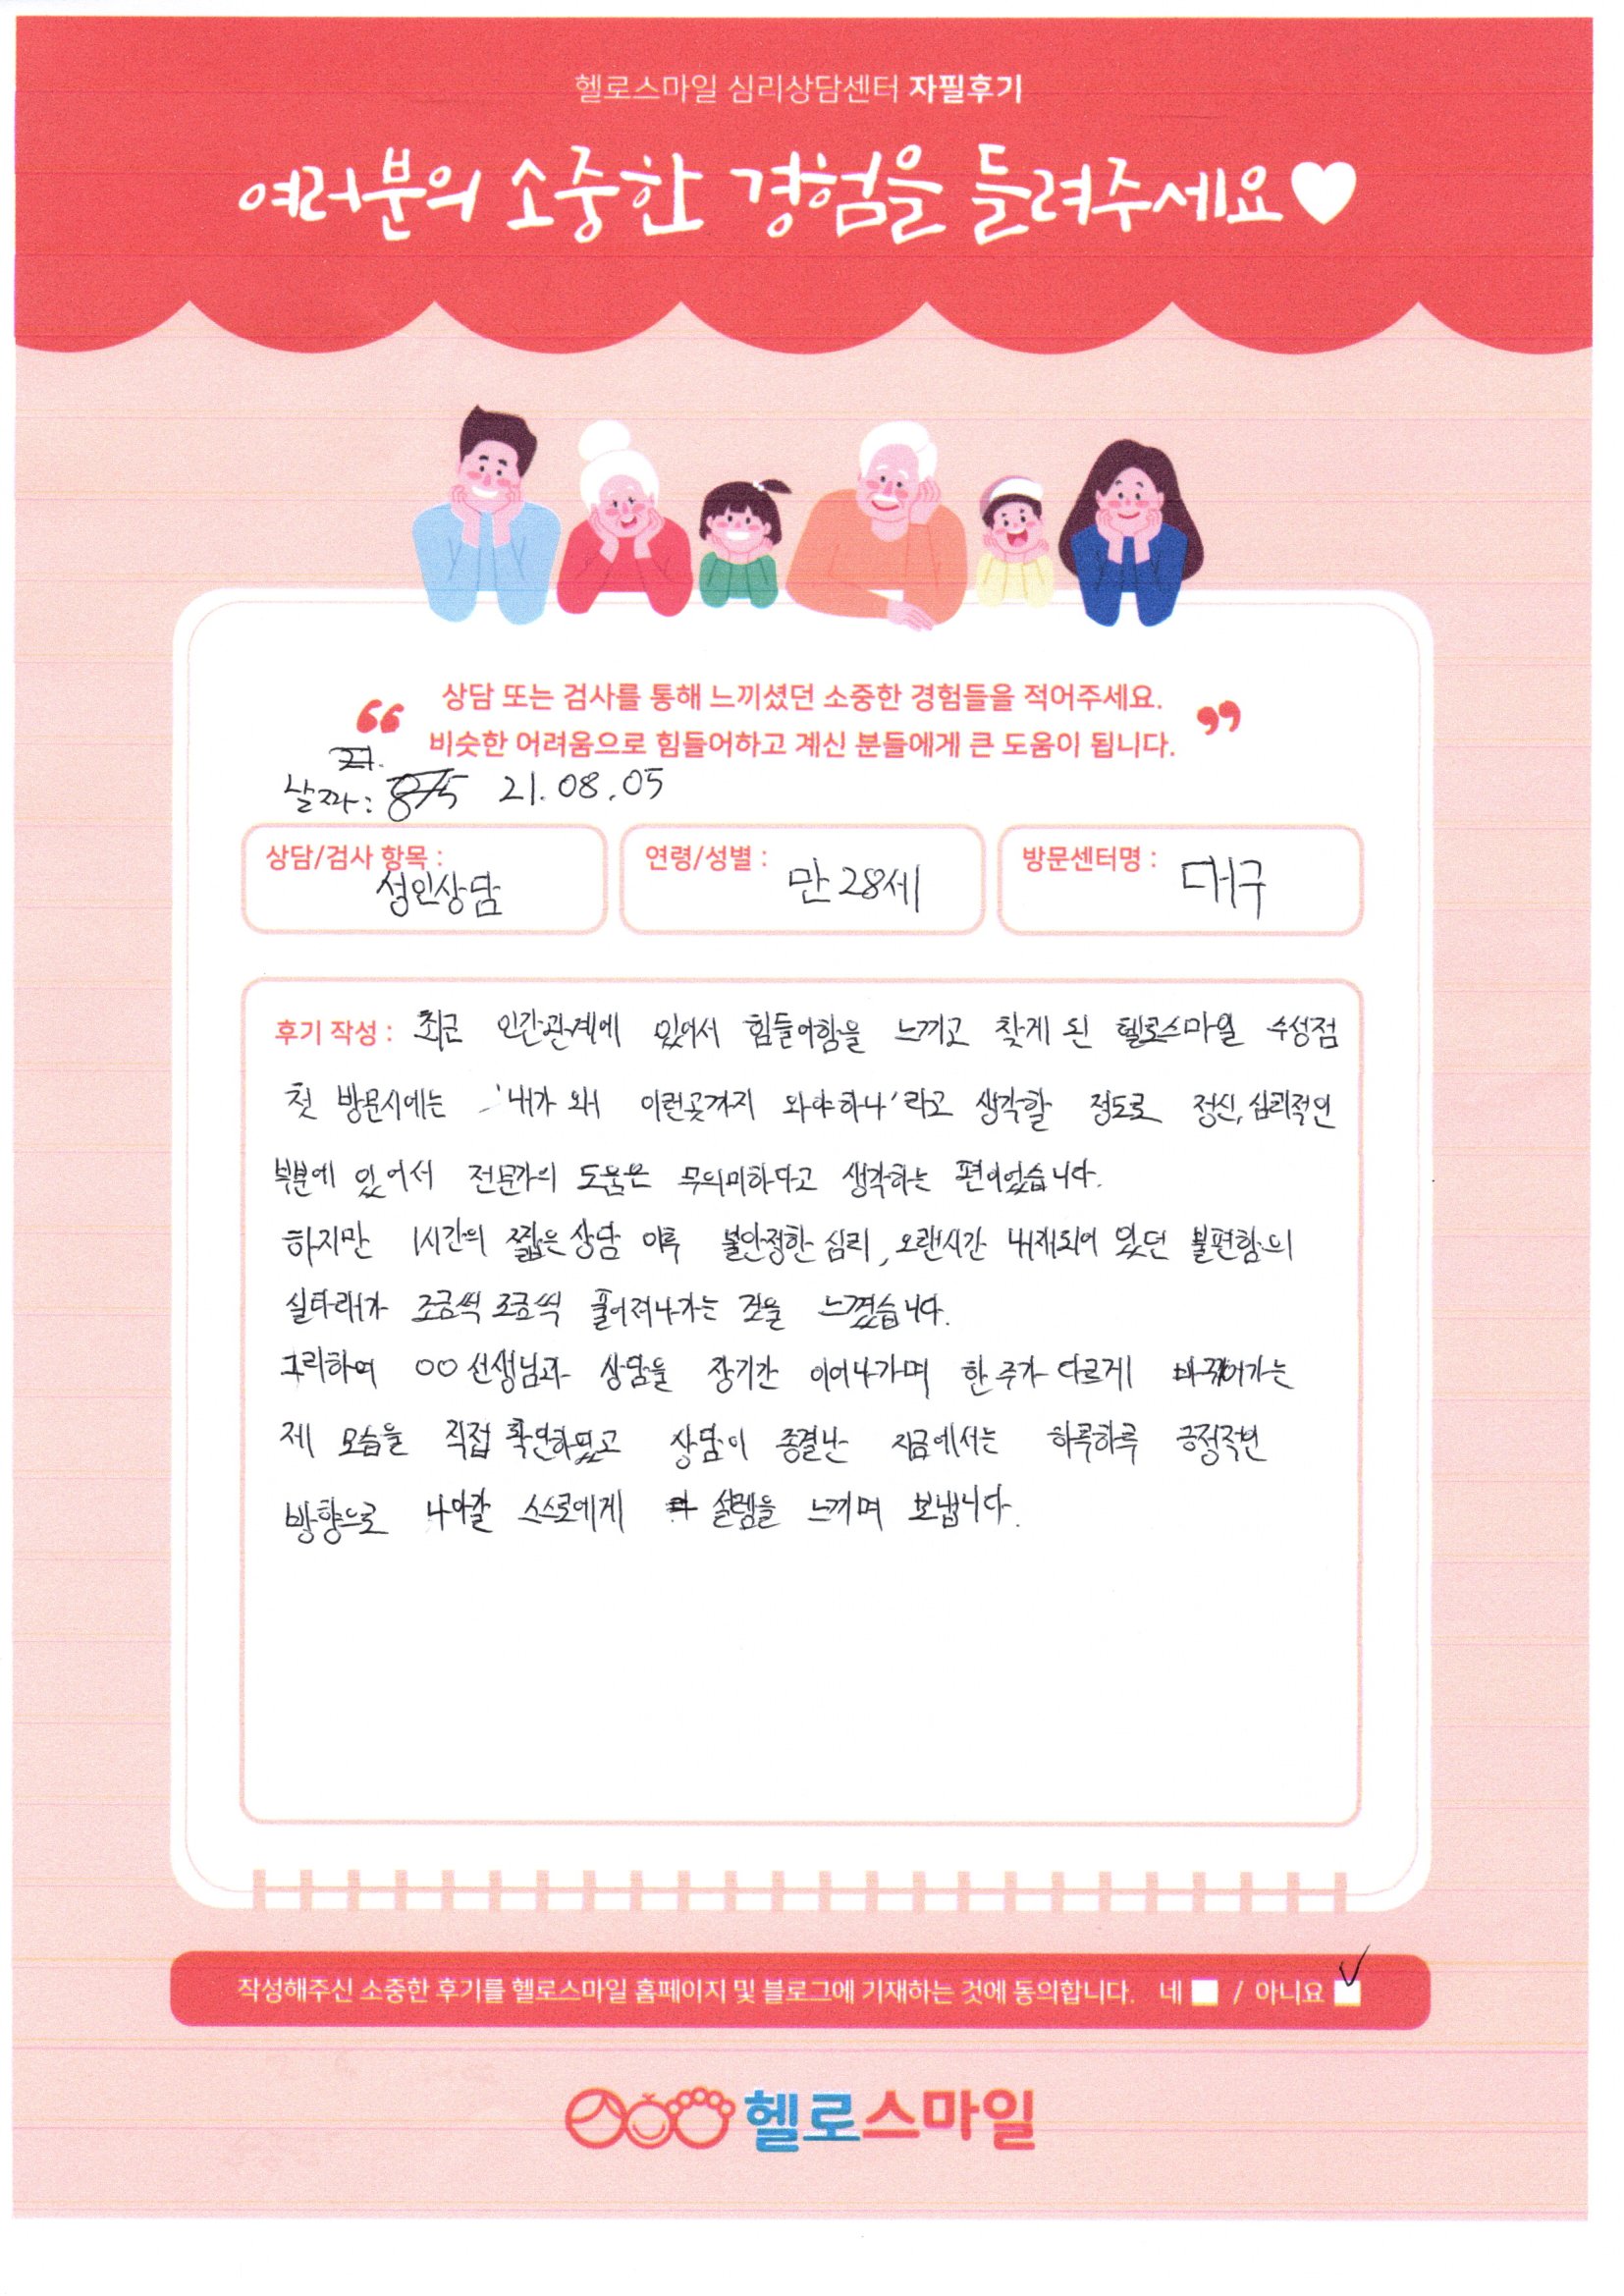 헬로스마일 심리상담센터 자필후기
여러분의 소중한 경험을 들려주세요
상담 또는 검사를 통해 느끼셨던 소중한 경험들을 적어주세요.
비슷한 어려움으로 힘들어하고 계신 분들에게 큰 도움이 됩니다.
날짜: 8/5 21.08.05
상담/검사 항목 : 성인상담
연령/성별 : 만 28세
방문센터명 : 대구
후기 작성 : 최근 인간관계에 있어서 힘들어함을 느끼고 찾게 된 헬로스마일 수성점
첫 방문시에는 '내가 왜 이런곳까지 와야하나'라고 생각할 정도로 정신, 심리적인
부분에 있어서 전문가의 도움은 무의미하다고 생각하는 편이었습니다.
하지만 1시간의 짧은 상담 이후 불안정한 심리, 오랜시간 내재되어 있던 불편함의
실타래가 조금씩 조금씩 풀어져나가는 것을 느꼈습니다.
그리하여 OO 선생님과 상담을 장기간 이어나가며 한 주가 다르게 바뀌어가는
제 모습을 직접 확인하였고 상담이 종결난 지금에서는 하루하루 긍정적인
방향으로 나아갈 스스로에게 설렘을 느끼며 보냅니다.
작성해주신 소중한 후기를 헬로스마일 홈페이지 및 블로그에 기재하는 것에 동의합니다. 네 / 아니요
헬로스마일